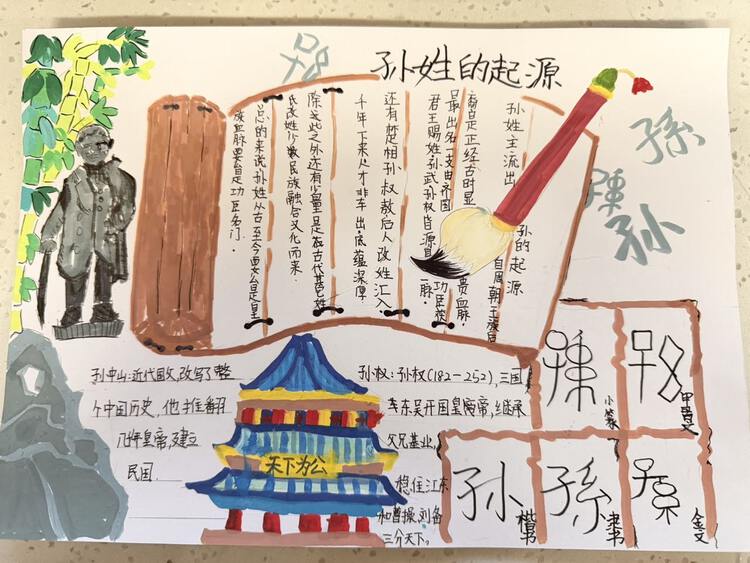 孙姓的起源
孫
孙
孙姓主流出
裔自是正经古时显
只最出名一支由齐国
君王赐姓孙武孙权皆源自
还有楚相孙叔敖后人改姓汇入
千年下来人才非车出底蕴深厚
除这些之外还有少量是在古代其它姓
氏改姓少数民族融合汉化而来
总的来说孙姓从古至今要么是皇
族血脉要自是功臣名门.
孙的起源
自周朝王族后
功臣
贵血脉.
脉.
孙中山:近代国父,改写了整
个中国历史,他推翻
几千年皇帝,建立
民国.
天下为公
孙权:孙权(182-252),三国
李东吴开国皇帝,继承
父兄基业,
稳住江东
和曹操,刘备
三分天下。
孫
小篆
甲骨文
孙
楷书
孫
隶书
金文